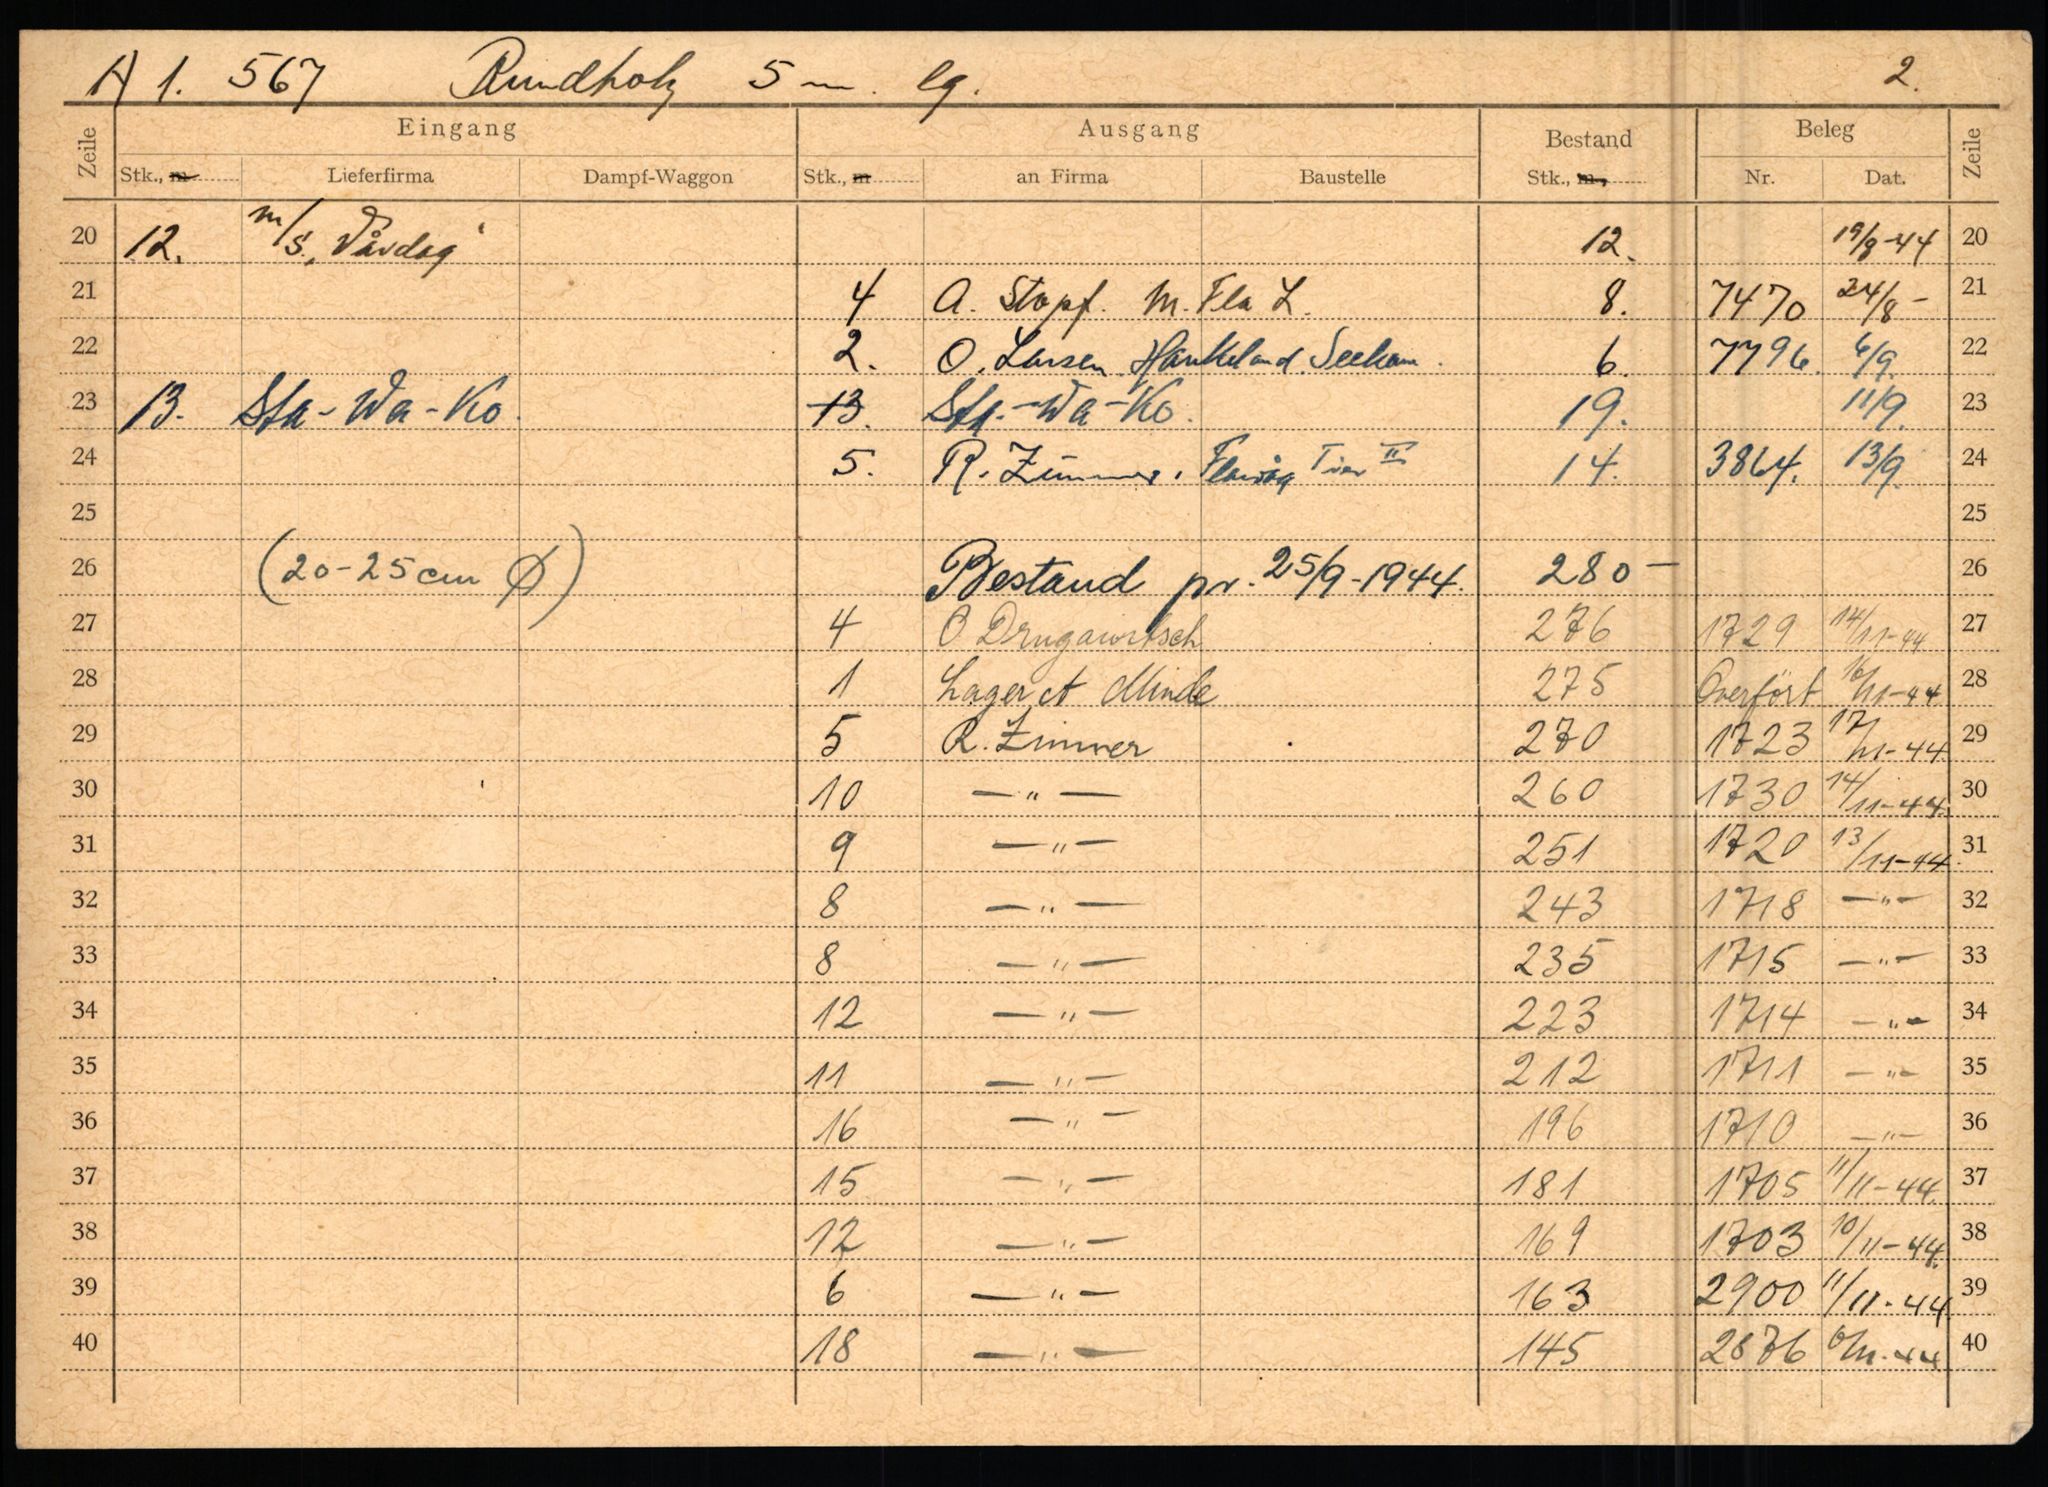 A 1. 567 Rundholz 5 m. lg. 2.
Zeile Eingang Ausgang Bestand Beleg Zeile
Stk., m Lieferfirma Dampf-Waggon Stk., m an Firma Baustelle Stk., m, Nr. Dat.
20 12. m/s. „Vårdag“ 12. 19/8-44 20
21 4 A. Stopf. M. Fla L. 8. 7470 24/8 - 21
22 2. O. Larsen. 6. 7796. 6/9. 22
23 13. Sta-Wa-Ko. 13. Sta.-Wa-Ko. 19. 11/9. 23
24 5. R. Zimmer. II 14. 3864. 13/9. 24
25 25
26 (20-25 cm Ø) Bestand pr. 25/9-1944. 280 — 26
27 4 O Drugawitsch 276 1729 14/11-44 27
28 1 Lager ct Minde 275 Overfört 16/11-44 28
29 5 R. Zimmer 270 1723 17/11-44. 29
30 10 — " — 260 1730 14/11-44. 30
31 9 — " — 251 1720 13/11-44. 31
32 8 — " — 243 1718 — " — 32
33 8 — " — 235 1715 — " — 33
34 12 — " — 223 1714 — " — 34
35 11 — " — 212 1711 — " — 35
36 16 — " — 196 1710 — " — 36
37 15 — " — 181 1705 11/11-44. 37
38 12 — " — 169 1703 10/11-44. 38
39 6 — " — 163 2900 11/11-44. 39
40 18 — " — 145 2876 40